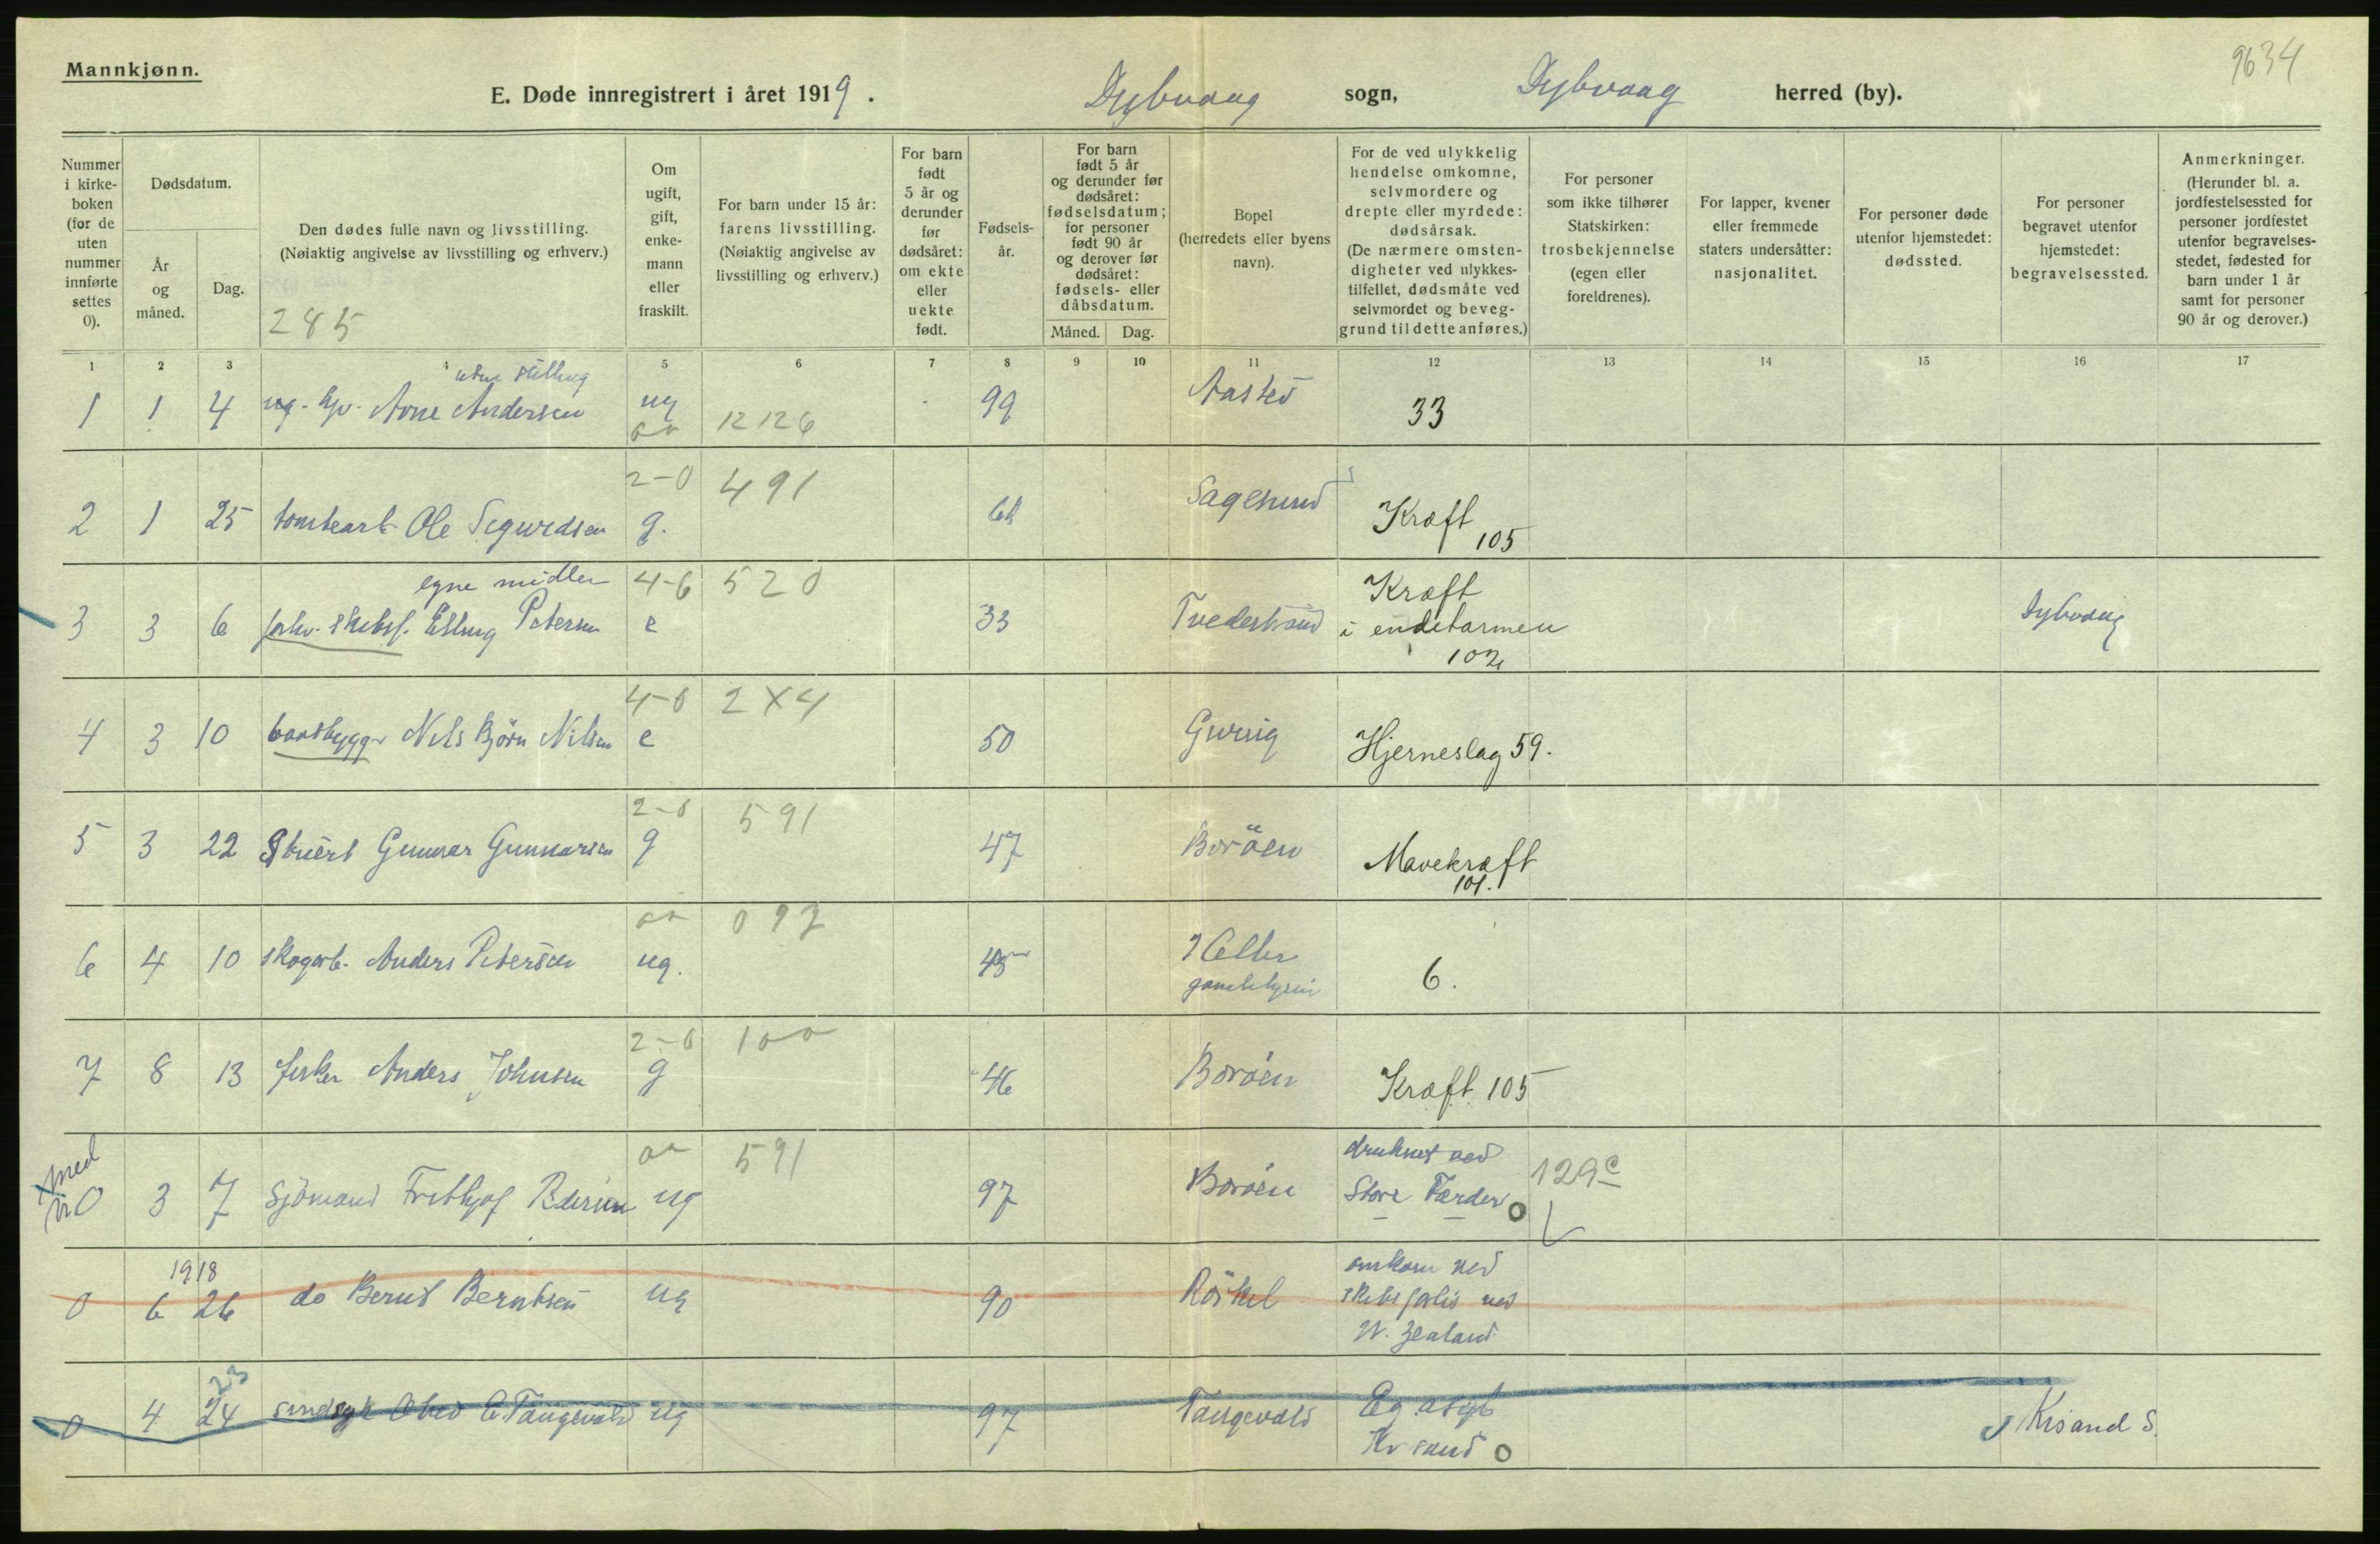 Mannkjønn.
9634
E. Døde innregistrert i året 1919. Dybvaag sogn, Dybvaag herred (by).
Nummer i kirkeboken (for de uten nummer innførte settes 0).
Dødsdatum.
År og måned.
Dag.
Den dødes fulle navn og livsstilling.
(Nøiaktig angivelse av livsstilling og erhverv.)
285
Om ugift, gift, enkemann eller fraskilt.
For barn under 15 år: farens livsstilling. (Nøiaktig angivelse av livsstilling og erhverv.)
For barn født 5 år og derunder før dødsåret: om ekte eller uekte født.
Fødselsår.
For barn født 5 år og derunder før dødsåret: fødselsdatum; for personer født 90 år og derover før dødsåret: fødsels- eller dåbsdatum.
Måned. Dag.
Bopel (herredets eller byens navn).
For de ved ulykkelig hendelse omkomne, selvmordere og drepte eller myrdede: dødsårsak. (De nærmere omstendigheter ved ulykkestilfellet, dødsmåte ved selvmordet og beveggrund til dette anføres.)
For personer som ikke tilhører Statskirken: trosbekjennelse (egen eller foreldrenes).
For lapper, kvener eller fremmede staters undersåtter: nasjonalitet.
For personer døde utenfor hjemstedet: dødssted.
For personer begravet utenfor hjemstedet: begravelsessted.
Anmerkninger. (Herunder bl. a. jordfestelsessted for personer jordfestet utenfor begravelsesstedet, fødested for barn under 1 år samt for personer 90 år og derover.)
1 2 3 4 5 6 7 8 9 10 11 12 13 14 15 16 17
uten stilling
1 1 4 Arne Andersen ug 12126 99 33
2-0 491
2 1 25 Ole Sigurdsen g. Sagesund Kræft
105
egne midler 4-6 520 Kræft
3 3 6 forhv. skibsf. Petersen e 33 Tvedestrand i endetarmen Dybvaag
102
4-0 2X4
4 3 10 baatbygger Nils Bjørn Nilsen e 50 Hjerneslag 59.
2-0 591
5 3 22 Gunnar Gunnarsen g 47 Borøen Mavekræft
101.
092
6 4 10 skogarb. Anders Petersen ug. 45 6.
2-0 100
7 8 13 fisker Anders Johnsen g 46 Borøen Kræft 105
med 591 druknet ved 129c
0 3 7 sjømand Frithjof Pedersen ug 97 Borøen Store Færder O
1918 omkom ved
0 6 26 do Bernt Berntsen ug 90 Røskil skibsforlis ved
N. Zealand
23
0 4 24 sindsyk Tangevald ug 97 Tangevald Eg asyl Krsand S.
Krsand O